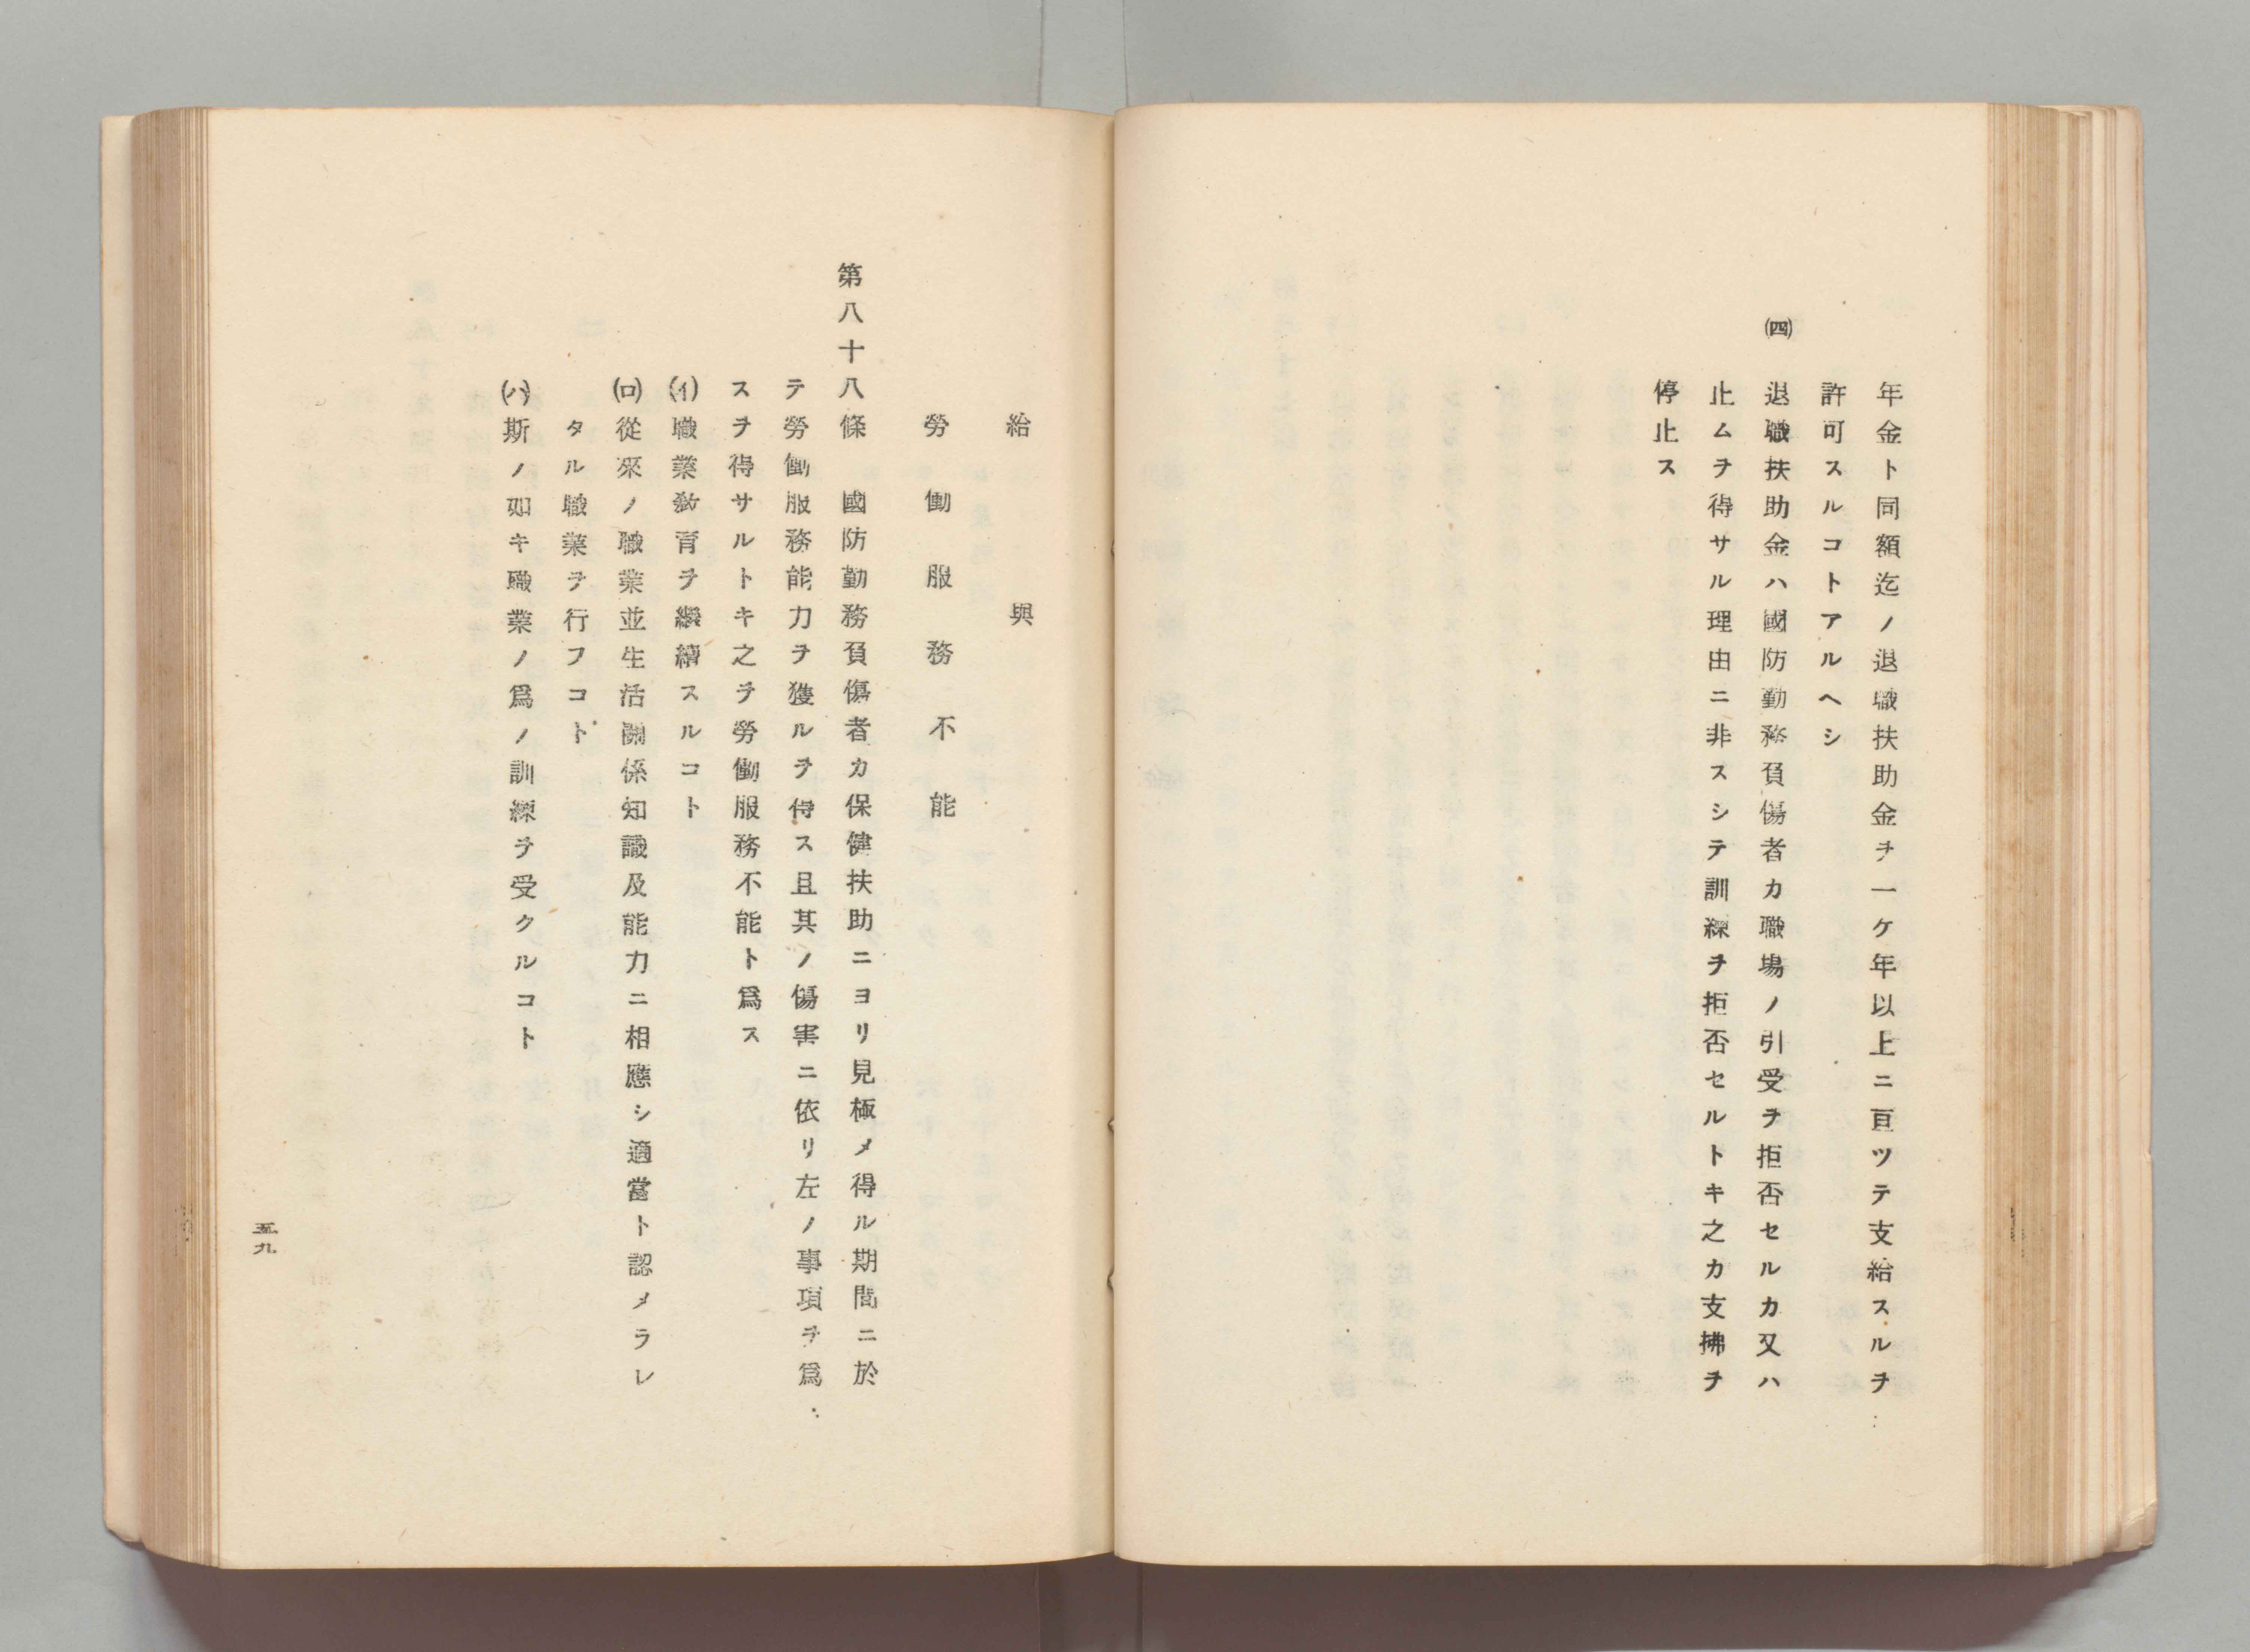 年金ト同額迄ノ退職扶助金ヲ一ケ年以上ニ亘ツテ支給スルヲ
許可スルコトアルヘシ
㈣ 退職扶助金ハ國防勤務負傷者カ職場ノ引受ヲ拒否セルカ又ハ
止ムヲ得サル理由ニ非スシテ訓練ヲ拒否セルトキ之カ支拂ヲ
停止ス
給與
勞働服務不能
第八十八條 國防勤務負傷者カ保健扶助ニヨリ見極メ得ル期間ニ於
テ勞働服務能力ヲ獲ルヲ得ス且其ノ傷害ニ依リ左ノ事項ヲ爲
スヲ得サルトキ之ヲ勞働服務不能ト爲ス
(イ)職業敎育ヲ繼續スルコト
(ロ)從來ノ職業並生活關係知識及能力ニ相應シ適當ト認メラレ
タル職業ヲ行フコト
(ハ)斯ノ如キ職業ノ爲ノ訓練ヲ受クルコト
五九